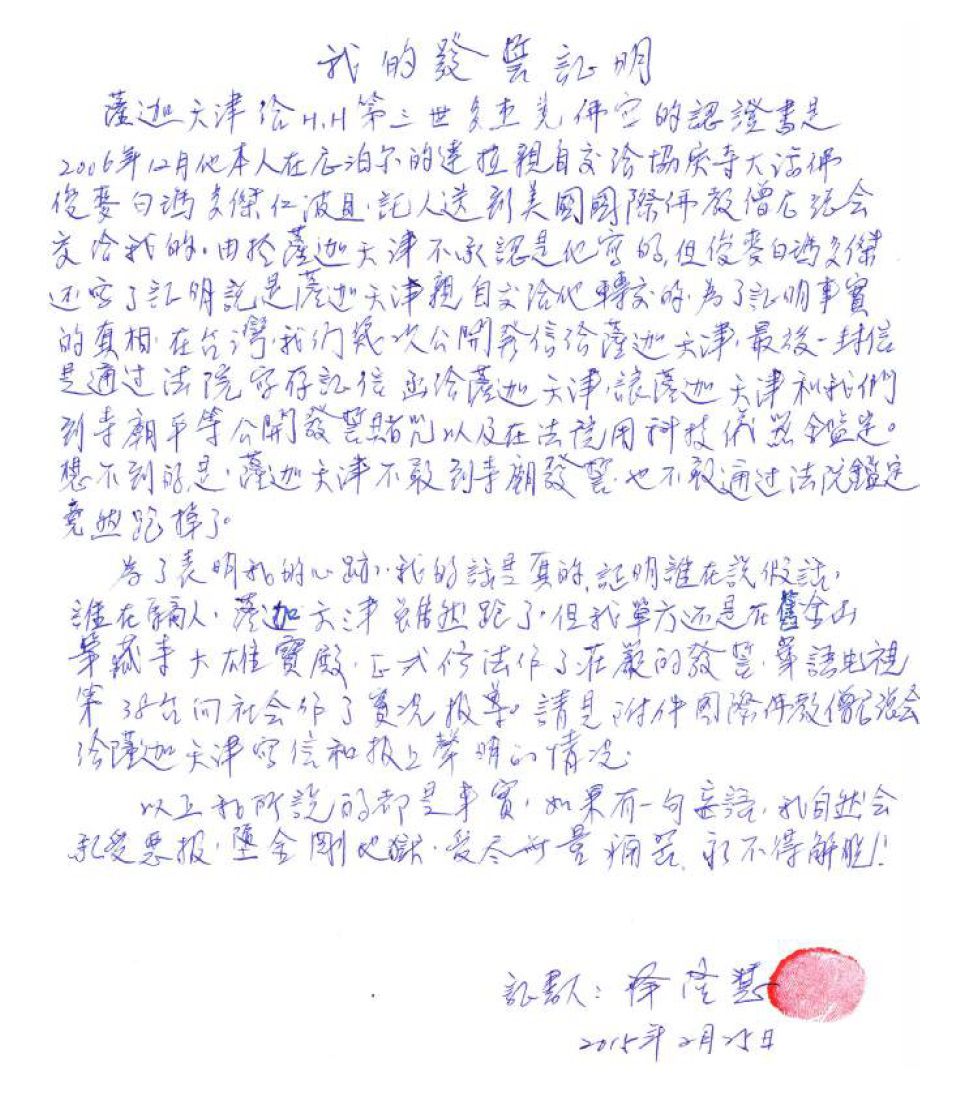 我的發誓証明
薩迦天津給H.H第三世多杰羌佛寫的認證書是
2006年12月他本人在尼泊尔的達拉親自交給協庆寺大活佛
俊麥白瑪多傑仁波且,託人送到美國國際佛教僧尼总会
交给我的。由於薩迦天津不承認是他寫的,但俊麥白瑪多傑
还写了証明説是薩迦天津親自交给他轉交的,為了証明事實
的真相,在台灣,我们幾次公開發信给薩迦天津,最後一封信
是通过法院寄存証信函给薩迦天津,讓薩迦天津和我們
到寺廟平等公開發誓賭咒以及在法院用科技儀器鑑定。
想不到的是,薩迦天津不敢到寺廟發誓,也不敢通过法院鑑定
竟然跑掉了。
為了表明我的心跡,我的話是真的,証明誰在説假話,
誰在騙人,薩迦天津雖然跑了,但我單方还是在舊金山
華藏寺大雄寶殿,正式修法作了莊嚴的發誓,華語电視
第38台向社会作了實況报導。請見附件國際佛教僧尼总会
给薩迦天津写信和报上聲明的情況。
以上我所說的都是事實,如果有一句妄語,我自然会
承受恶报,墮金剛地獄,受尽无量痛苦,永不得解脱!
証書人:隆慧
2015年2月25日